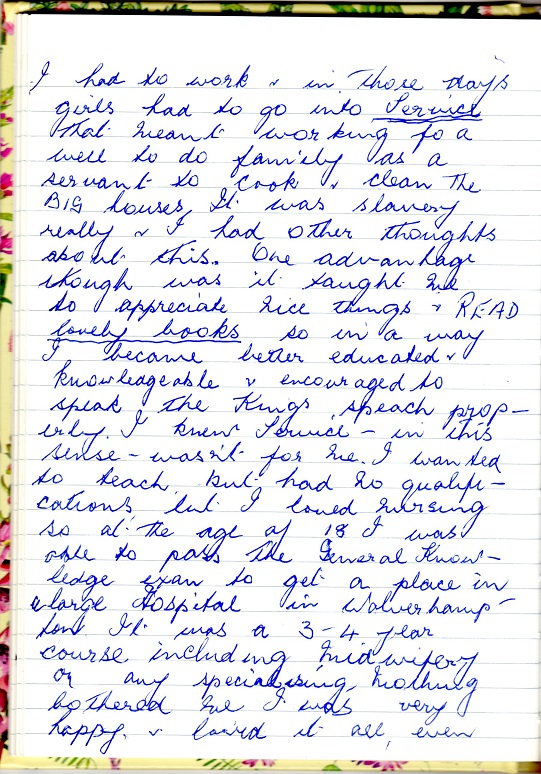 I had to work & in those days
girls had to go into Service
that meant working fo a
well to do family as a
servant to cook & clean the
BIG houses, It was slavery
really & I had other thoughts
about this. One advantage
though was it taught me
to appreciate nice things & READ
lovely books, so in a way
I became better educated &
knowledgeable & encouraged to
speak the Kings speach prop-
erly. I knew Service - in this
sense - wasn't for me. I wanted
to teach but had no qualifi-
cations but I loved nursing
so at the age of 18 I was
able to pass the General Know-
ledge exam to get a place in
a large Hospital in Wolverhamp-
ton. It was a 3-4 year
course including midwifery
or any specialising, Nothing
bothered me I was very
happy, & loved it all, even